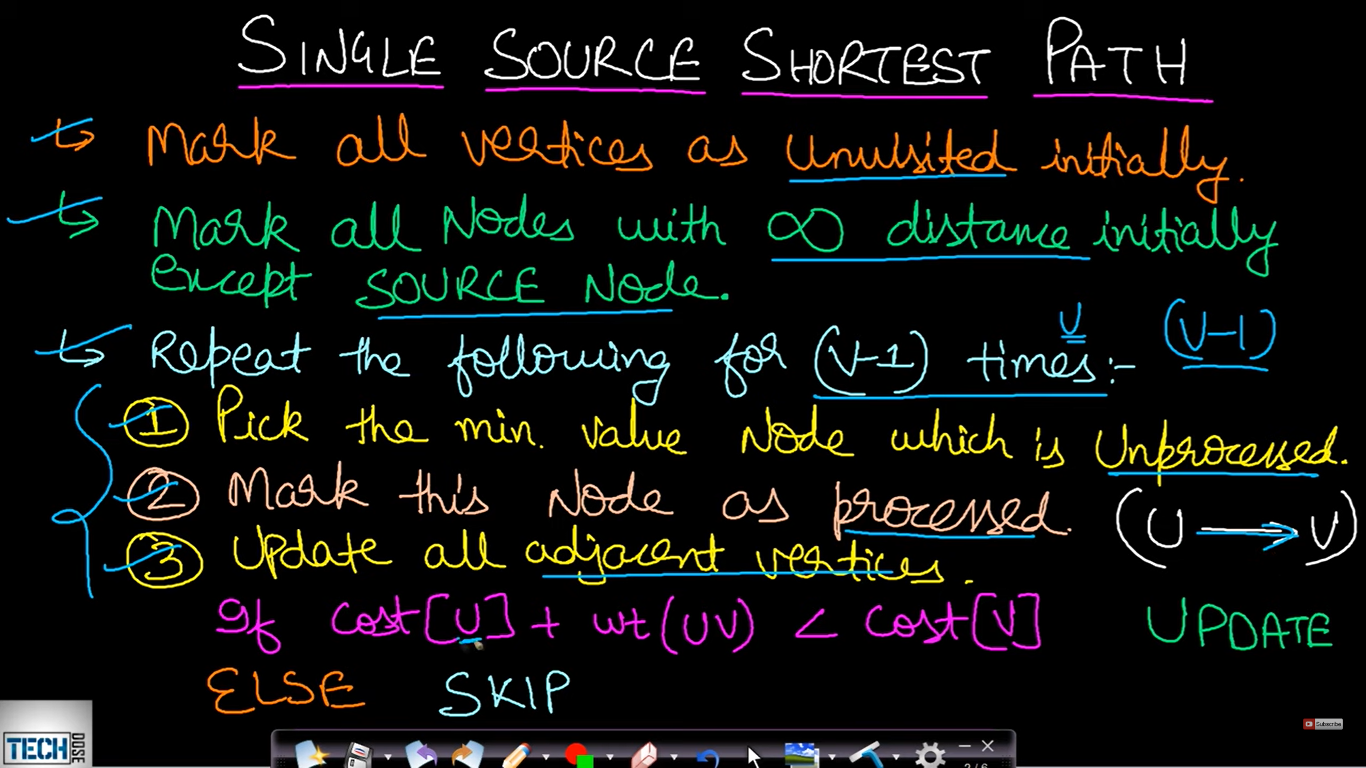 SINGLE SOURCE SHORTEST PATH
Mark all vertices as Unvisited initially.
Mark all Nodes with ∞ distance initially
except SOURCE Node.
V (V-1)
Repeat the following for (V-1) times:-
① Pick the min. value Node which is Unprocessed.
② Mark this Node as processed.
(U → V)
③ Update all adjacent vertices.
If Cost[U] + wt(UV) < Cost[V] UPDATE
ELSE SKIP
TECH DOSE
Subscribe
2/6